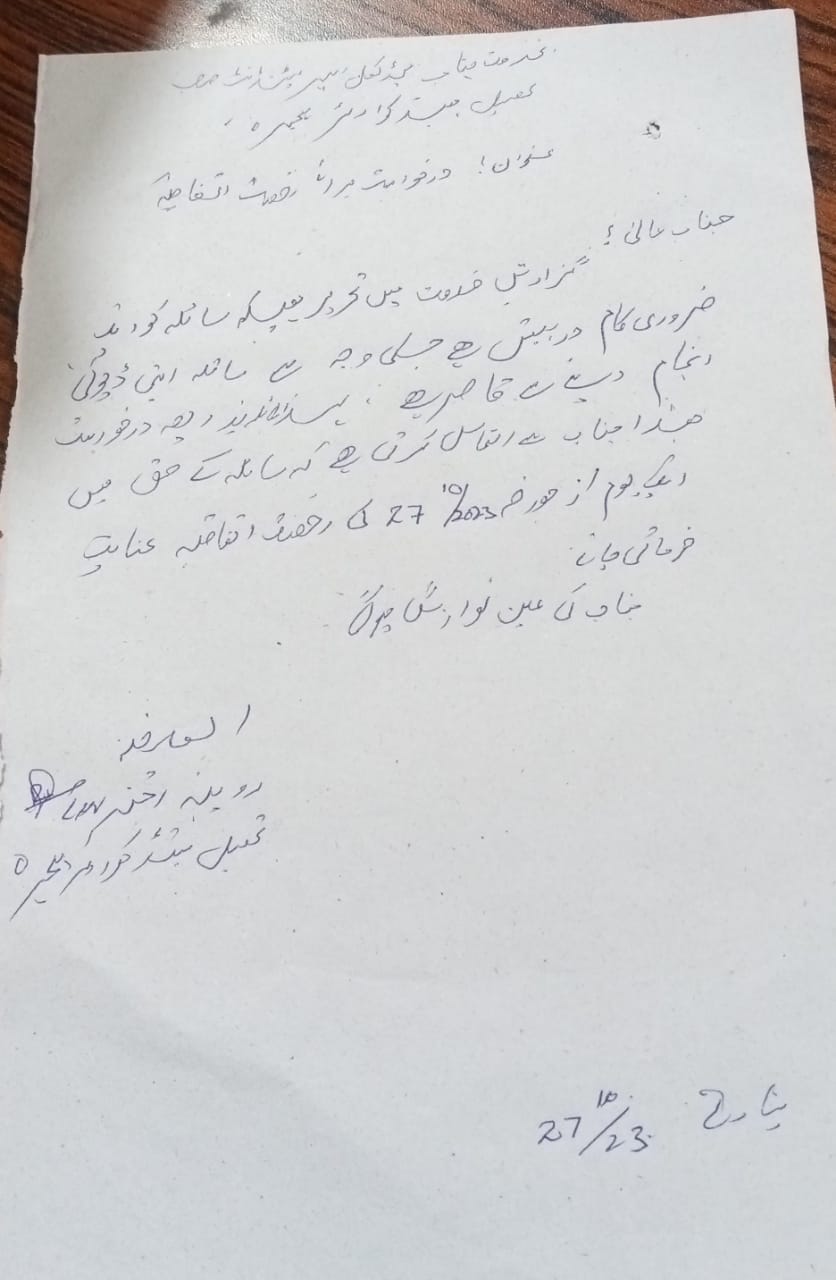 بخدمت جناب میڈیکل سپرنٹنڈنٹ صاحب
تحصیل ہیڈ کوارٹر
عنوان! درخواست برائے رخصت اتفاقیہ
جناب عالی!
گزارش خدمت میں تحریر ہیکہ سائلہ کو ایک
ضروری کام درپیش ہے جسکی وجہ سے سائلہ اپنی ڈیوٹی
انجام دینے سے قاصر ہے، بذریعہ درخواست
ہذا جناب سے التماس کرتی ہے کہ سائلہ کے حق میں
ایک یوم از مورخہ 27/10/2023 کی رخصت اتفاقیہ عنایت
فرمائی جائے
جناب کی عین نوازش ہوگی
العارضہ
روبینہ اختر
تحصیل ہیڈ کوارٹر
تاریخ 27/10/23